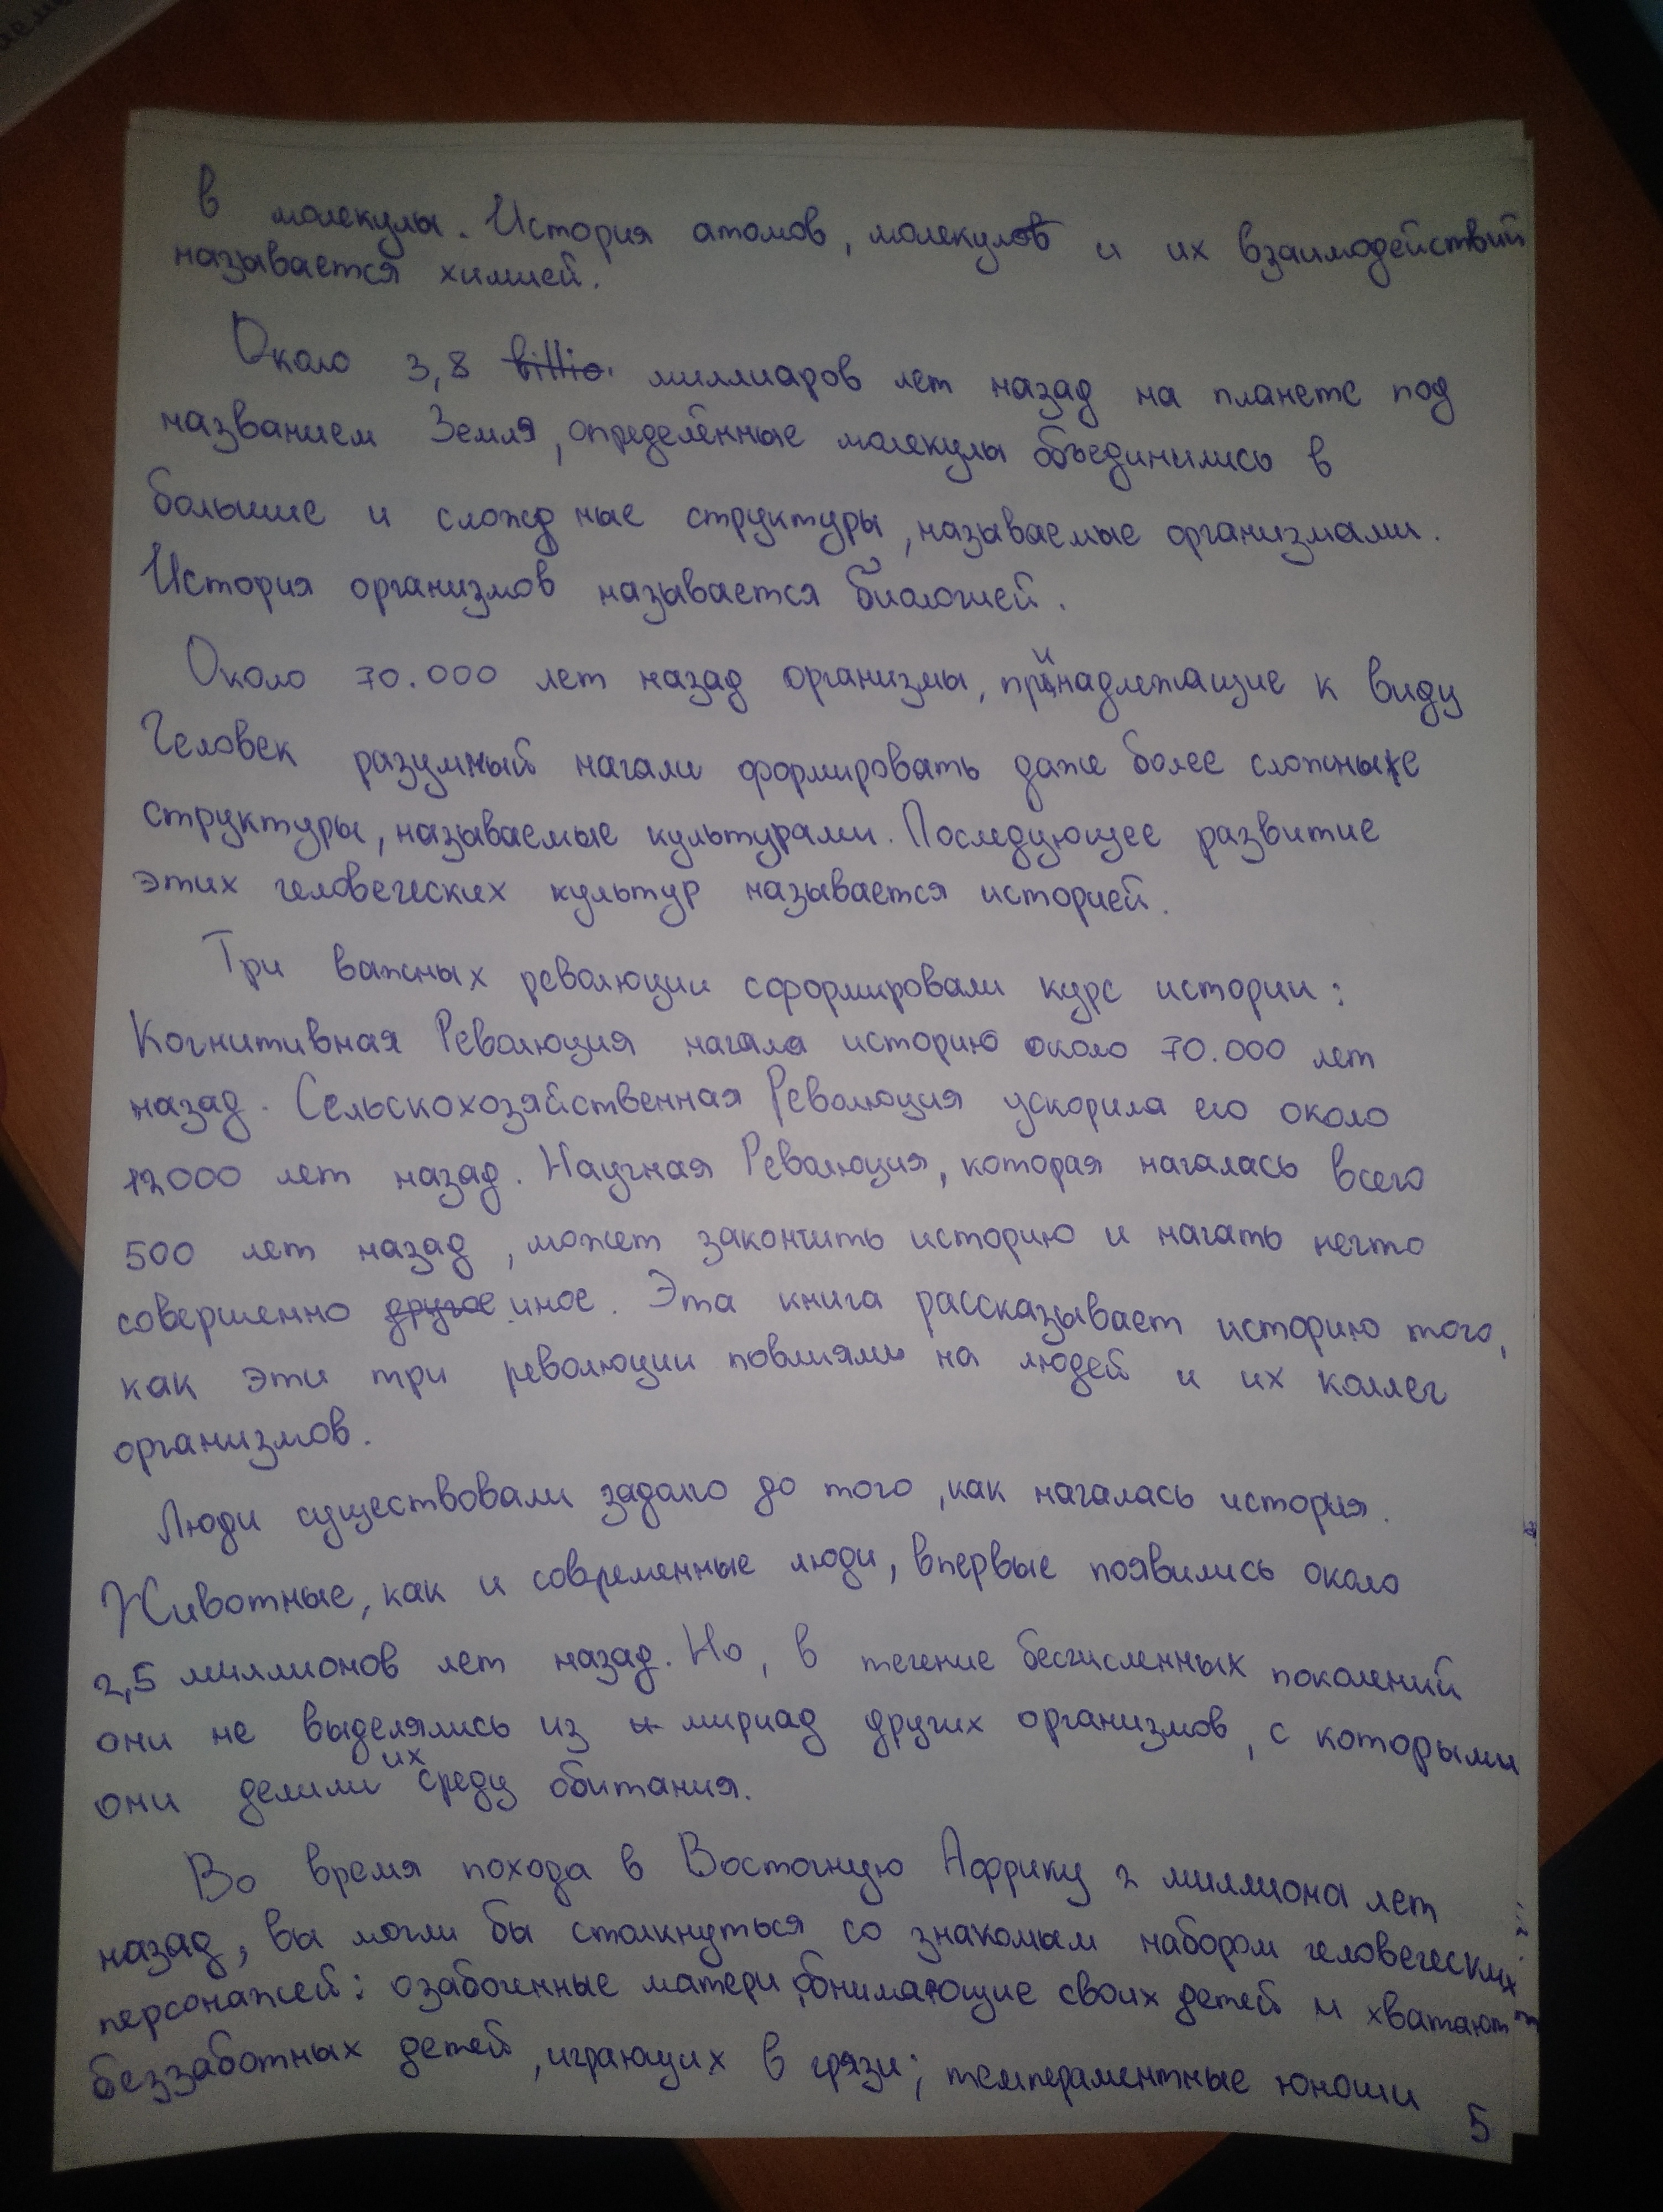 в молекулы. История атомов, молекулов и их взаимодействий
называется химией.
Около 3,8 billio миллиаров лет назад на планете под
названием Земля, определённые молекулы объединились в
большие и сложд ные структуры, называемые организмами.
История организмов называется биологией.
Около 70.000 лет назад организмы, принадлежащие к виду
Человек разумный начали формировать даже более сложные
структуры, называемые культурами. Последующее развитие
этих человеческих культур называется историей.
Три важных революции сформировали курс истории:
Когнитивная Революция начала историю около 70.000 лет
назад. Сельскохозяйственная Революция ускорила его около
12000 лет назад. Научная Революция, которая началась всего
500 лет назад, может закончить историю и начать нечто
совершенно другое иное. Эта книга рассказывает историю того,
как эти три революции повлияли на людей и их коллег
организмов.
Люди существовали задолго до того, как началась история.
Животные, как и современные люди, впервые появились около
2,5 миллионов лет назад. Но, в течение бесчисленных поколений
они не выделялись из и мириад других организмов, с которыми
они делили их среду обитания.
Во время похода в Восточную Африку 2 миллиона лет
назад, вы могли бы столкнуться со знакомым набором человеческих
персонажей: озабоченные матери, обнимающие своих детей и хватают
беззаботных детей, играющих в грязи; темпераментные юноши
5